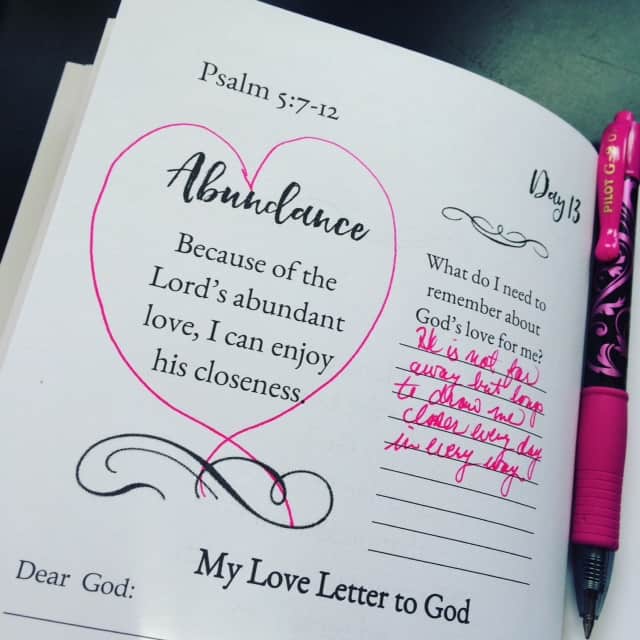 Psalm 5:7-12
Abundance
Because of the
Lord's abundant
love, I can enjoy
his closeness.
Day 13
What do I need to
remember about
God's love for me?
He is not far
away but longs
to draw me
closer every day
in every way.
My Love Letter to God
Dear God:
PILOT